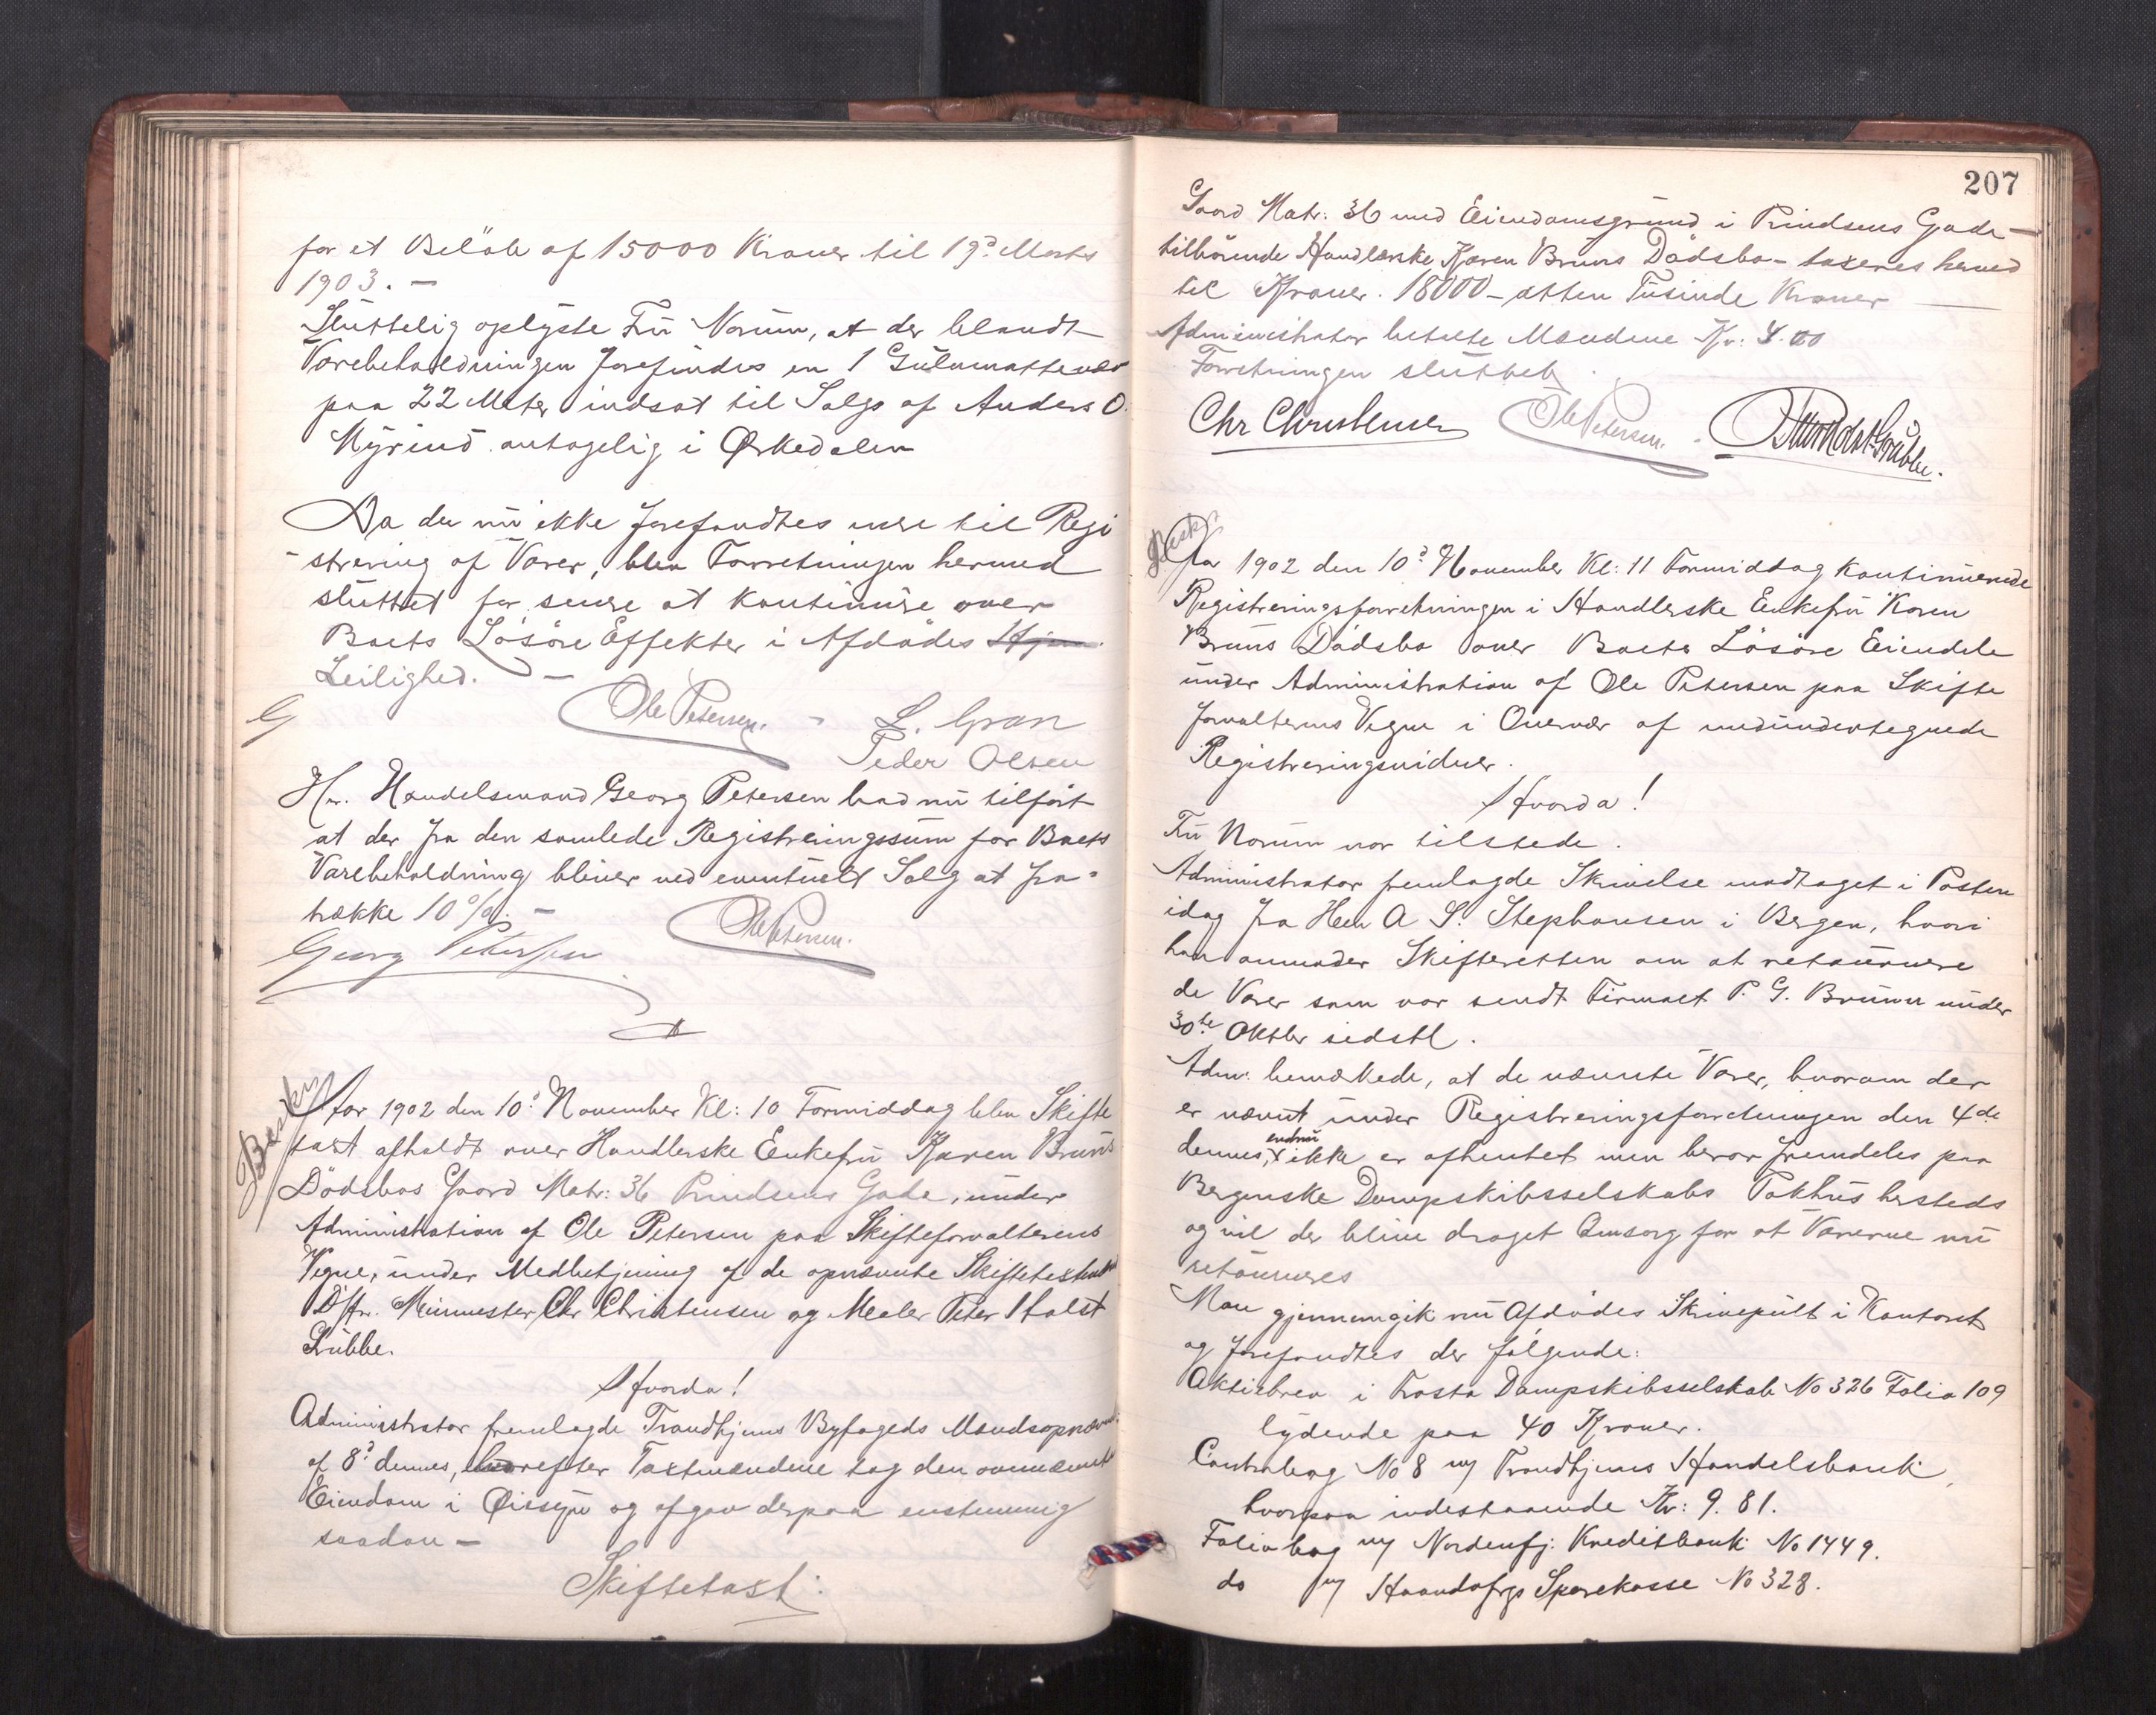 for et Beløb af 15000 Kroner til 19d Marts
1903. —
Sluttelig oplyste Fru Norum, at der blandt
Varebeholdningen forefindes en 1 Gulvmattevæv
paa 22 Meter indsat til Salgs af Anders O.
Myrind antagelig i Ørkedalen
Da der nu ikke forefandtes mere til Regi
-strering af Varer, blev Forretningen hermed
sluttet for senere at kontinuere over
Boets Løsøre Effekter i Afdødes Hjem
Leilighed. —
G Ole Petersen. - L. Gran
Peder Olsen
Hr. Handelsmand Georg Petersen bad nu tilført
at der fra den samlede Registreringssum for Boets
Varebeholdning bliver ved eventuelt Salg at fra-
trække 10%. —
Georg Petersen Ole Petersen.
Besk
Aar 1902 den 10d November Kl: 10 Formiddag blev Skifte
taxt afholdt over Handlerske Enkefru Karen Bruns
Dødsbos Gaard Matr: 36 Prindsens Gade, under
Administration af Ole Petersen paa Skifteforvalterens
Vegne, under Medbetjening af de opnævnte Skiftetaxtmænd
D'Hrr. Murmester Chr Christensen og Mæler Peter Holst
Grübbe.
Hvorda!
Administrator fremlagde Trondhjems Byfogeds Mandsopnævn
af 8d dennes, hvorefter Taxtmændene tog den ovennævnte
Eiendom i Øiesyn og afgav derpaa enstemmig
saadan —
Skiftetaxt:
207
Gaard Matr: 36 med Eiendomsgrund i Prindsens Gade —
tilhørende Handlerske Karen Bruns Dødsbo - taxeres herved
til Kroner. 18000 - atten Tusinde Kroner
Administrator betalte Mændene Kr: 4.00
Forretningen sluttet.
Chr Christensen Ole Petersen. P Holst Grübbe.
Besk
Aar 1902 den 10d November Kl: 11 Formiddag kontinuerede
Registreringsforretningen i Handlerske Enkefru Karen
Bruns Dødsbo over Boets Løsøre Eiendele
under Administration af Ole Petersen paa Skifte
forvalterens Vegne i Overvær af medundertegnede
Registreringsvidner.
Hvorda!
Fru Norum var tilstede.
Administrator fremlagde Skrivelse modtaget i Posten
idag fra Herr A S. Stephansen i Bergen, hvori
han anmoder Skifteretten om at retournere
de Varer som var sendt Firmaet P. G. Brunn under
30te Oktbr sidstl.
Adm. bemærkede, at de nævnte Varer, hvorom der
er nævnt under Registreringsforretningen den 4de
dennes, endnu ikke er afhentet men beror fremdeles paa
Bergenske Dampskibsselskabs Pakhus hersteds
og vil der blive draget Omsorg for at Varerne nu
retourneres
Man gjennemgik nu Afdødes Skrivepult i Kontoret
og forefandtes der følgende:
Aktiebrev i Frosta Dampskibsselskab No 326 Folio 109
lydende paa 40 Kroner.
Contrabog No 8 m/ Trondhjems Handelsbank
hvorpaa indestaaende Kr: 9.81.
Foliobog m/ Nordenfj: Kreditbank No 1449.
do m/ Haandsfrgs Sparekasse No 328.